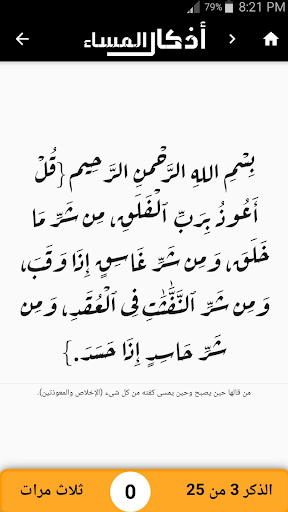 79% 8:21 PM
أذكار المساء
بِسْمِ اللهِ الرَّحْمنِ الرَّحِيم {قُلْ
أَعُوذُ بِرَبِّ ٱلْفَلَقِ، مِن شَرِّ مَا
خَلَقَ، وَمِن شَرِّ غَاسِقٍ إِذَا وَقَبَ،
وَمِن شَرِّ ٱلنَّفَّٰثَٰتِ فِى ٱلْعُقَدِ، وَمِن
شَرِّ حَاسِدٍ إِذَا حَسَدَ.}
من قالها حين يصبح وحين يمسى كفته من كل شىء (الإخلاص والمعوذتين).
الذكر 3 من 25
0
ثلاث مرات